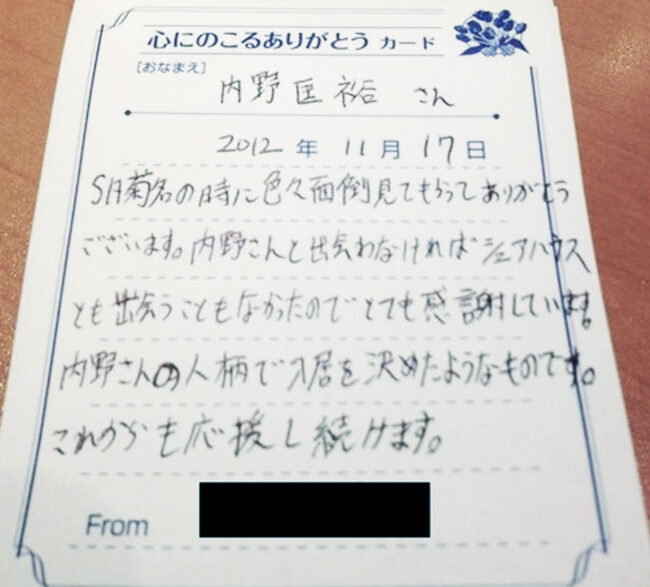 心にのこるありがとう カード
[おなまえ]
内野匡裕 さん
2012 年 11 月 17 日
SH菊名の時に色々面倒見てもらってありがとう
ございます。内野さんと出会わなければシェアハウス
とも出会うこともなかったのでとても感謝しています。
内野さんの人柄で入居を決めたようなものです。
これからも応援し続けます。
From